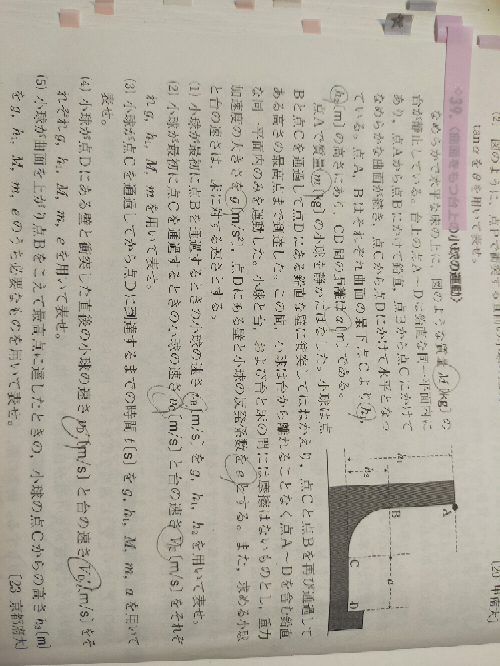 (2) 図のように，点Pで衝突
tanαをθを用いて表せ。
[21 甲南大]
◇39.〈曲面をもつ台上の小球の運動〉
なめらかで水平な床の上に，図のような質量M[kg]の
台が静止している。台上の点A～Dは鉛直な同一平面内に
あり，点Aから点Bにかけて鉛直，点Bから点Cにかけて
なめらかな曲面が続き，点Cから点Dにかけて水平となっ
ている。点A，Bはそれぞれ曲面の最下点Cよりh₁，
h₂[m]の高さにあり，CD間の距離はa[m]である。
点Aで質量m[kg]の小球を静かにはなした。小球は点
Bと点Cを通過して点Dにある鉛直な壁に衝突してはねかえり，点Cと点Bを再び通過して
ある高さの最高点まで到達した。この間，小球は台から離れることなく点A～Dを含む鉛直
な同一平面内のみを運動した。小球と台，および台と床の間には摩擦はないものとし，重力
加速度の大きさをg[m/s²]，点Dにある壁と小球の反発係数をeとする。また，求める小球
と台の速さは，床に対する速さとする。
(1) 小球が最初に点Bを通過するときの小球の速さv_B[m/s]をg，h₁，h₂を用いて表せ。
(2) 小球が最初に点Cを通過するときの小球の速さv_C[m/s]と台の速さV_C[m/s]をそれぞ
れg，h₁，M，mを用いて表せ。
(3) 小球が点Cを通過してから点Dに到達するまでの時間t[s]をg，h₁，M，m，aを用いて
表せ。
(4) 小球が点Dにある壁と衝突した直後の小球の速さv_D[m/s]と台の速さV_D[m/s]をそ
れぞれg，h₁，M，m，eを用いて表せ。
(5) 小球が曲面を上がり点Bをこえて最高点に達したときの，小球の点Cからの高さh₃[m]
をg，h₁，M，m，eのうち必要なものを用いて表せ。
[23 京都府大]
A
B
C
D
h₁
h₂
a